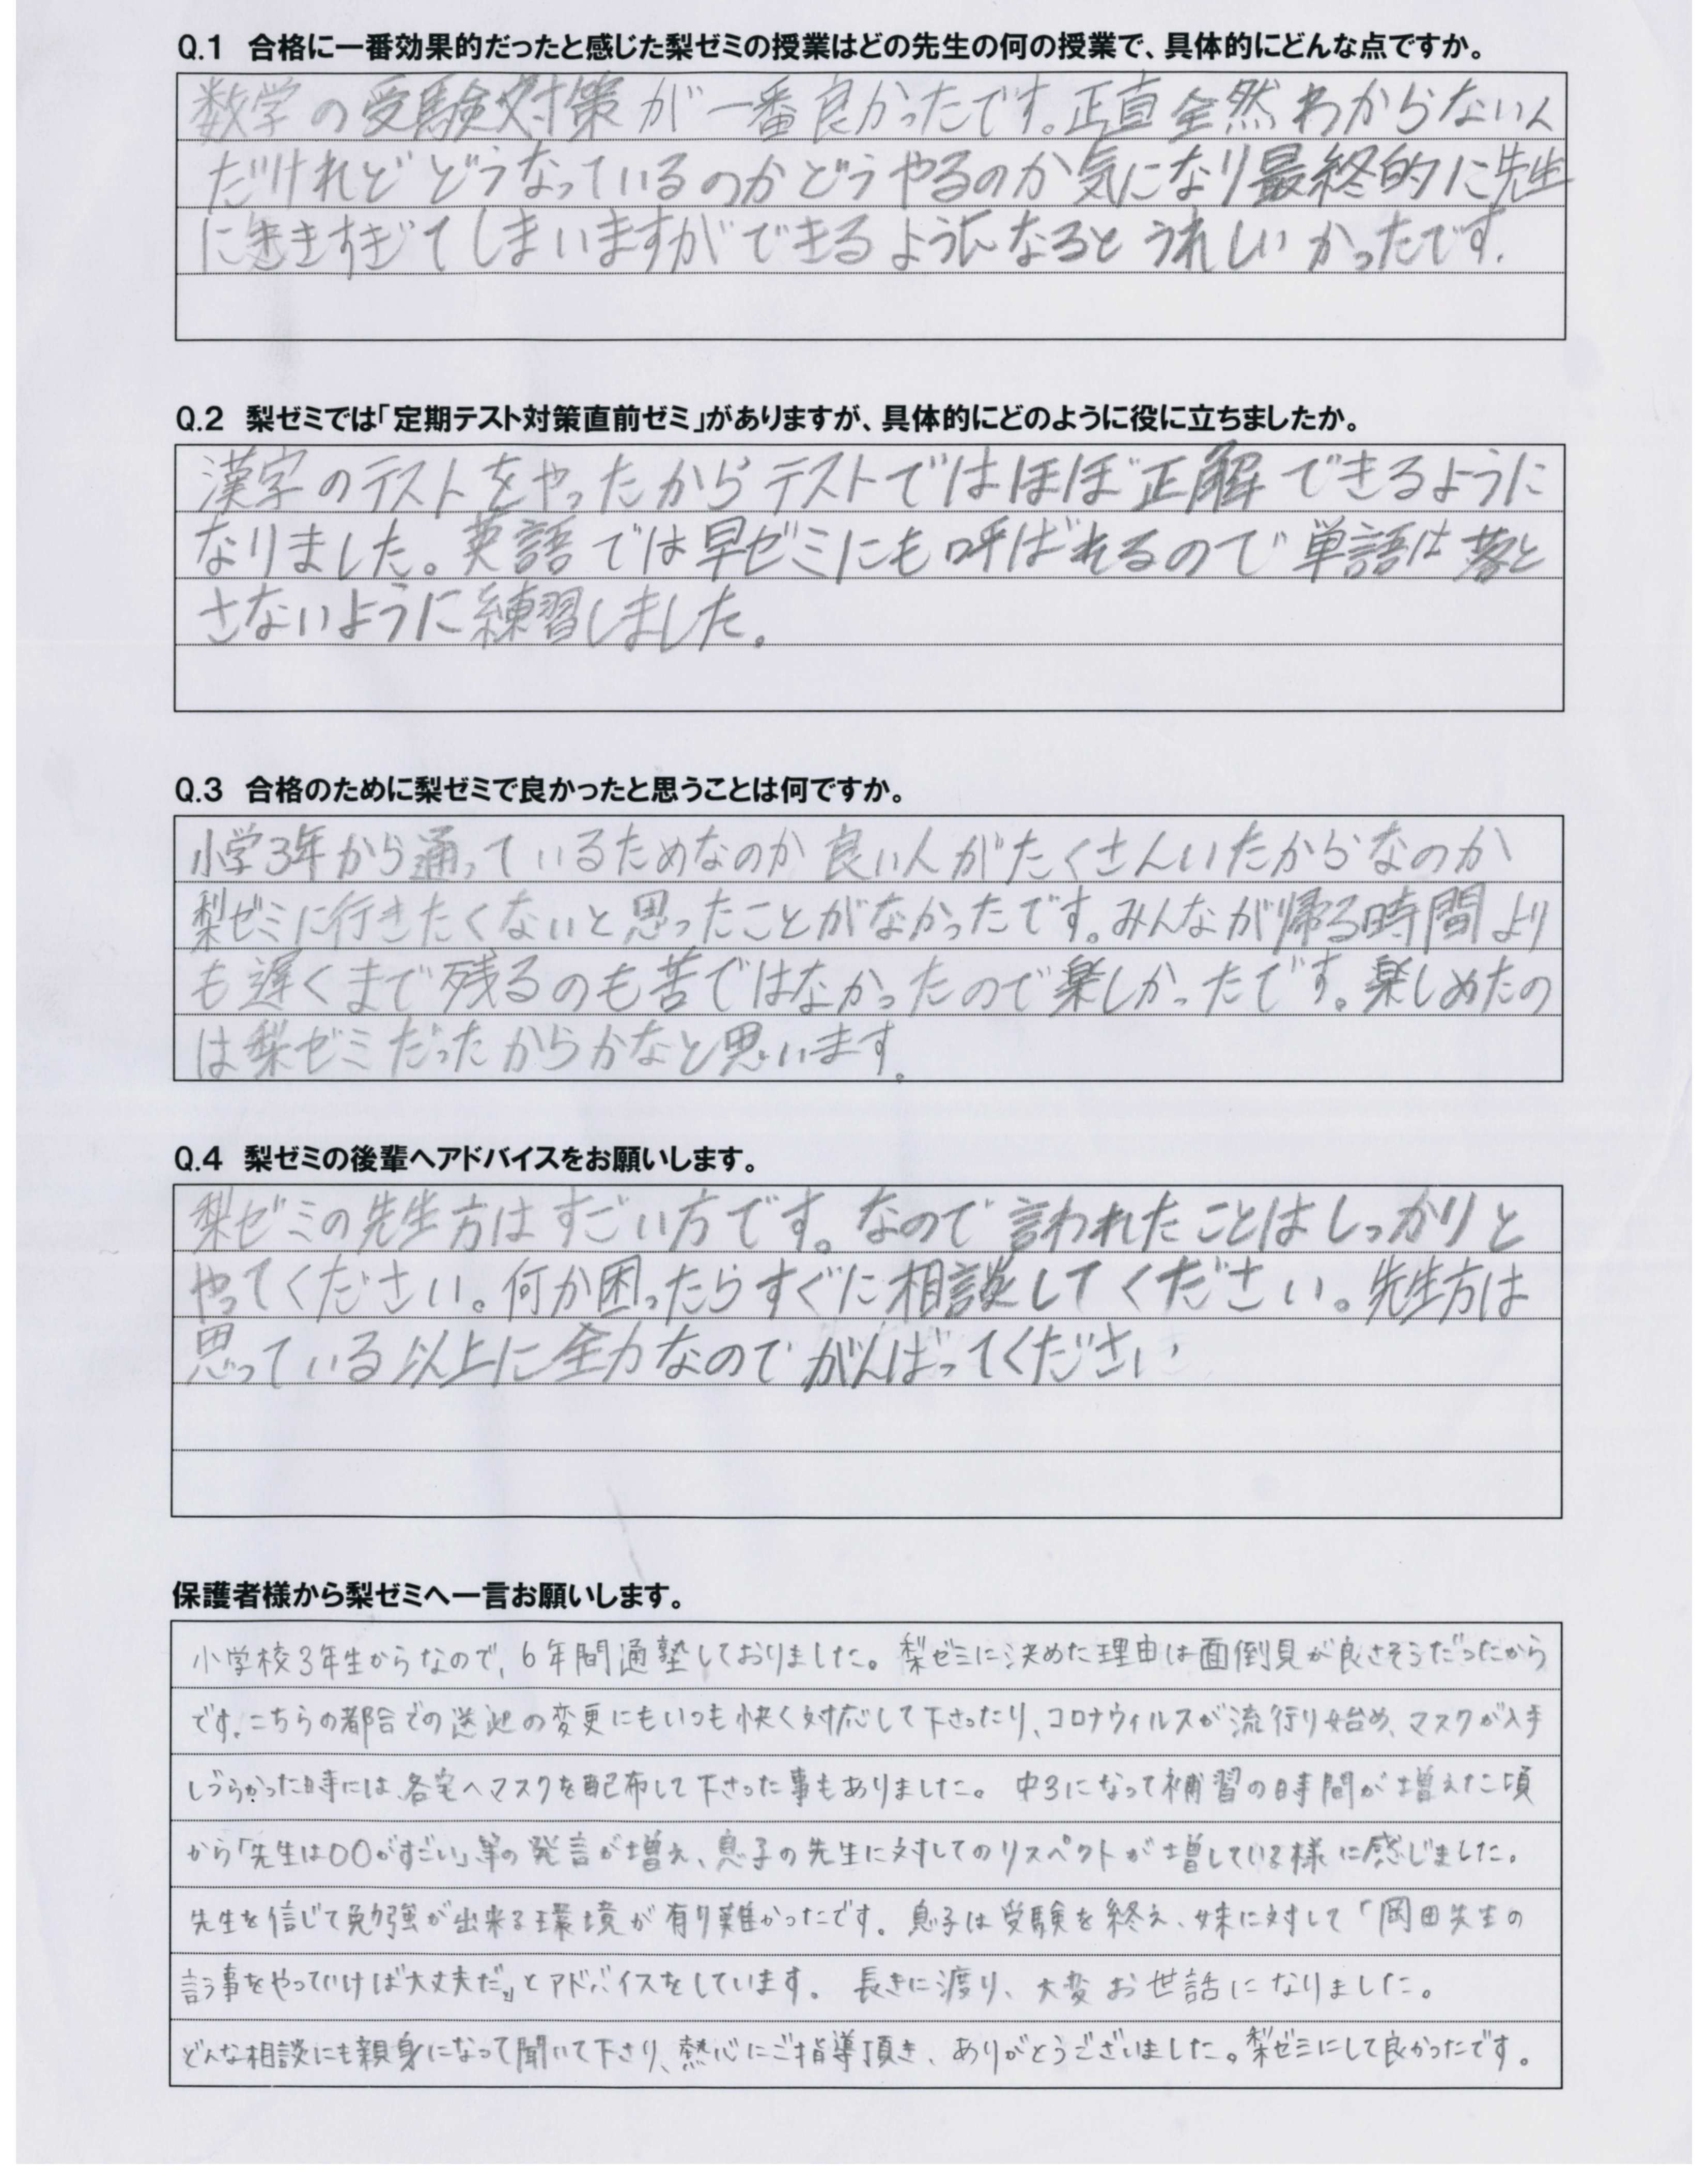 Q.1 合格に一番効果的だったと感じた梨ゼミの授業はどの先生の何の授業で、具体的にどんな点ですか。
数学の受験対策が一番良かったです。正直全然わからないん
だけれどどうなっているのかどうやるのか気になり最終的に先生
にききすぎてしまいますができるようになるとうれしいかったです。
Q.2 梨ゼミでは「定期テスト対策直前ゼミ」がありますが、具体的にどのように役に立ちましたか。
漢字のテストをやったからテストではほぼ正解できるように
なりました。英語では早ゼミにも呼ばれるので単語は落と
さないように練習しました。
Q.3 合格のために梨ゼミで良かったと思うことは何ですか。
小学3年から通っているためなのか良い人がたくさんいたからなのか
梨ゼミに行きたくないと思ったことがなかったです。みんなが帰る時間より
も遅くまで残るのも苦ではなかったので楽しかったです。楽しめたの
は梨ゼミだったからかなと思います。
Q.4 梨ゼミの後輩へアドバイスをお願いします。
梨ゼミの先生方はすごい方です。なので言われたことはしっかりと
やってください。何か困ったらすぐに相談してください。先生方は
思っている以上に全力なのでがんばってください
保護者様から梨ゼミへ一言お願いします。
小学校3年生からなので、6年間通塾しておりました。梨ゼミに決めた理由は面倒見が良さそうだったから
です。こちらの都合での送迎の変更にもいつも快く対応して下さったり、コロナウィルスが流行り始め、マスクが入手
しづらかった時には、各宅へマスクを配布して下さった事もありました。中3になって補習の時間が増えた頃
から「先生は〇〇がすごい」等の発言が増え、息子の先生に対してのリスペクトが増している様に感じました。
先生を信じて勉強が出来る環境が有り難かったです。息子は受験を終え、妹に対して「岡田先生の
言う事をやっていけば大丈夫だ」とアドバイスをしています。長きに渡り、大変お世話になりました。
どんな相談にも親身になって聞いて下さり、熱心にご指導頂き、ありがとうございました。梨ゼミにして良かったです。